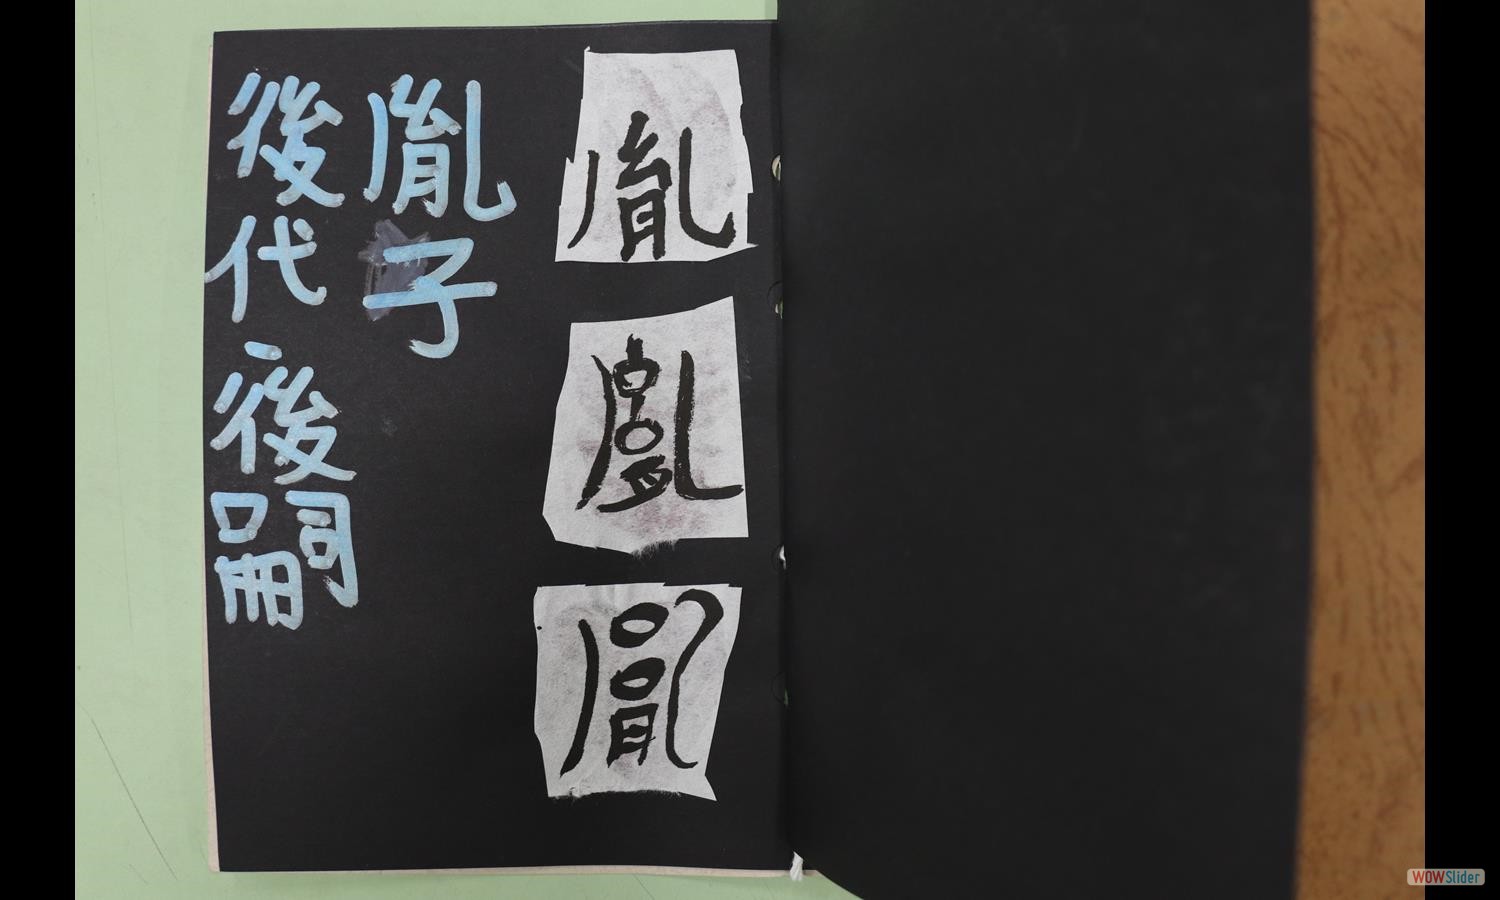 胤
胤
胤
胤子
後代、後嗣
WOWSlider